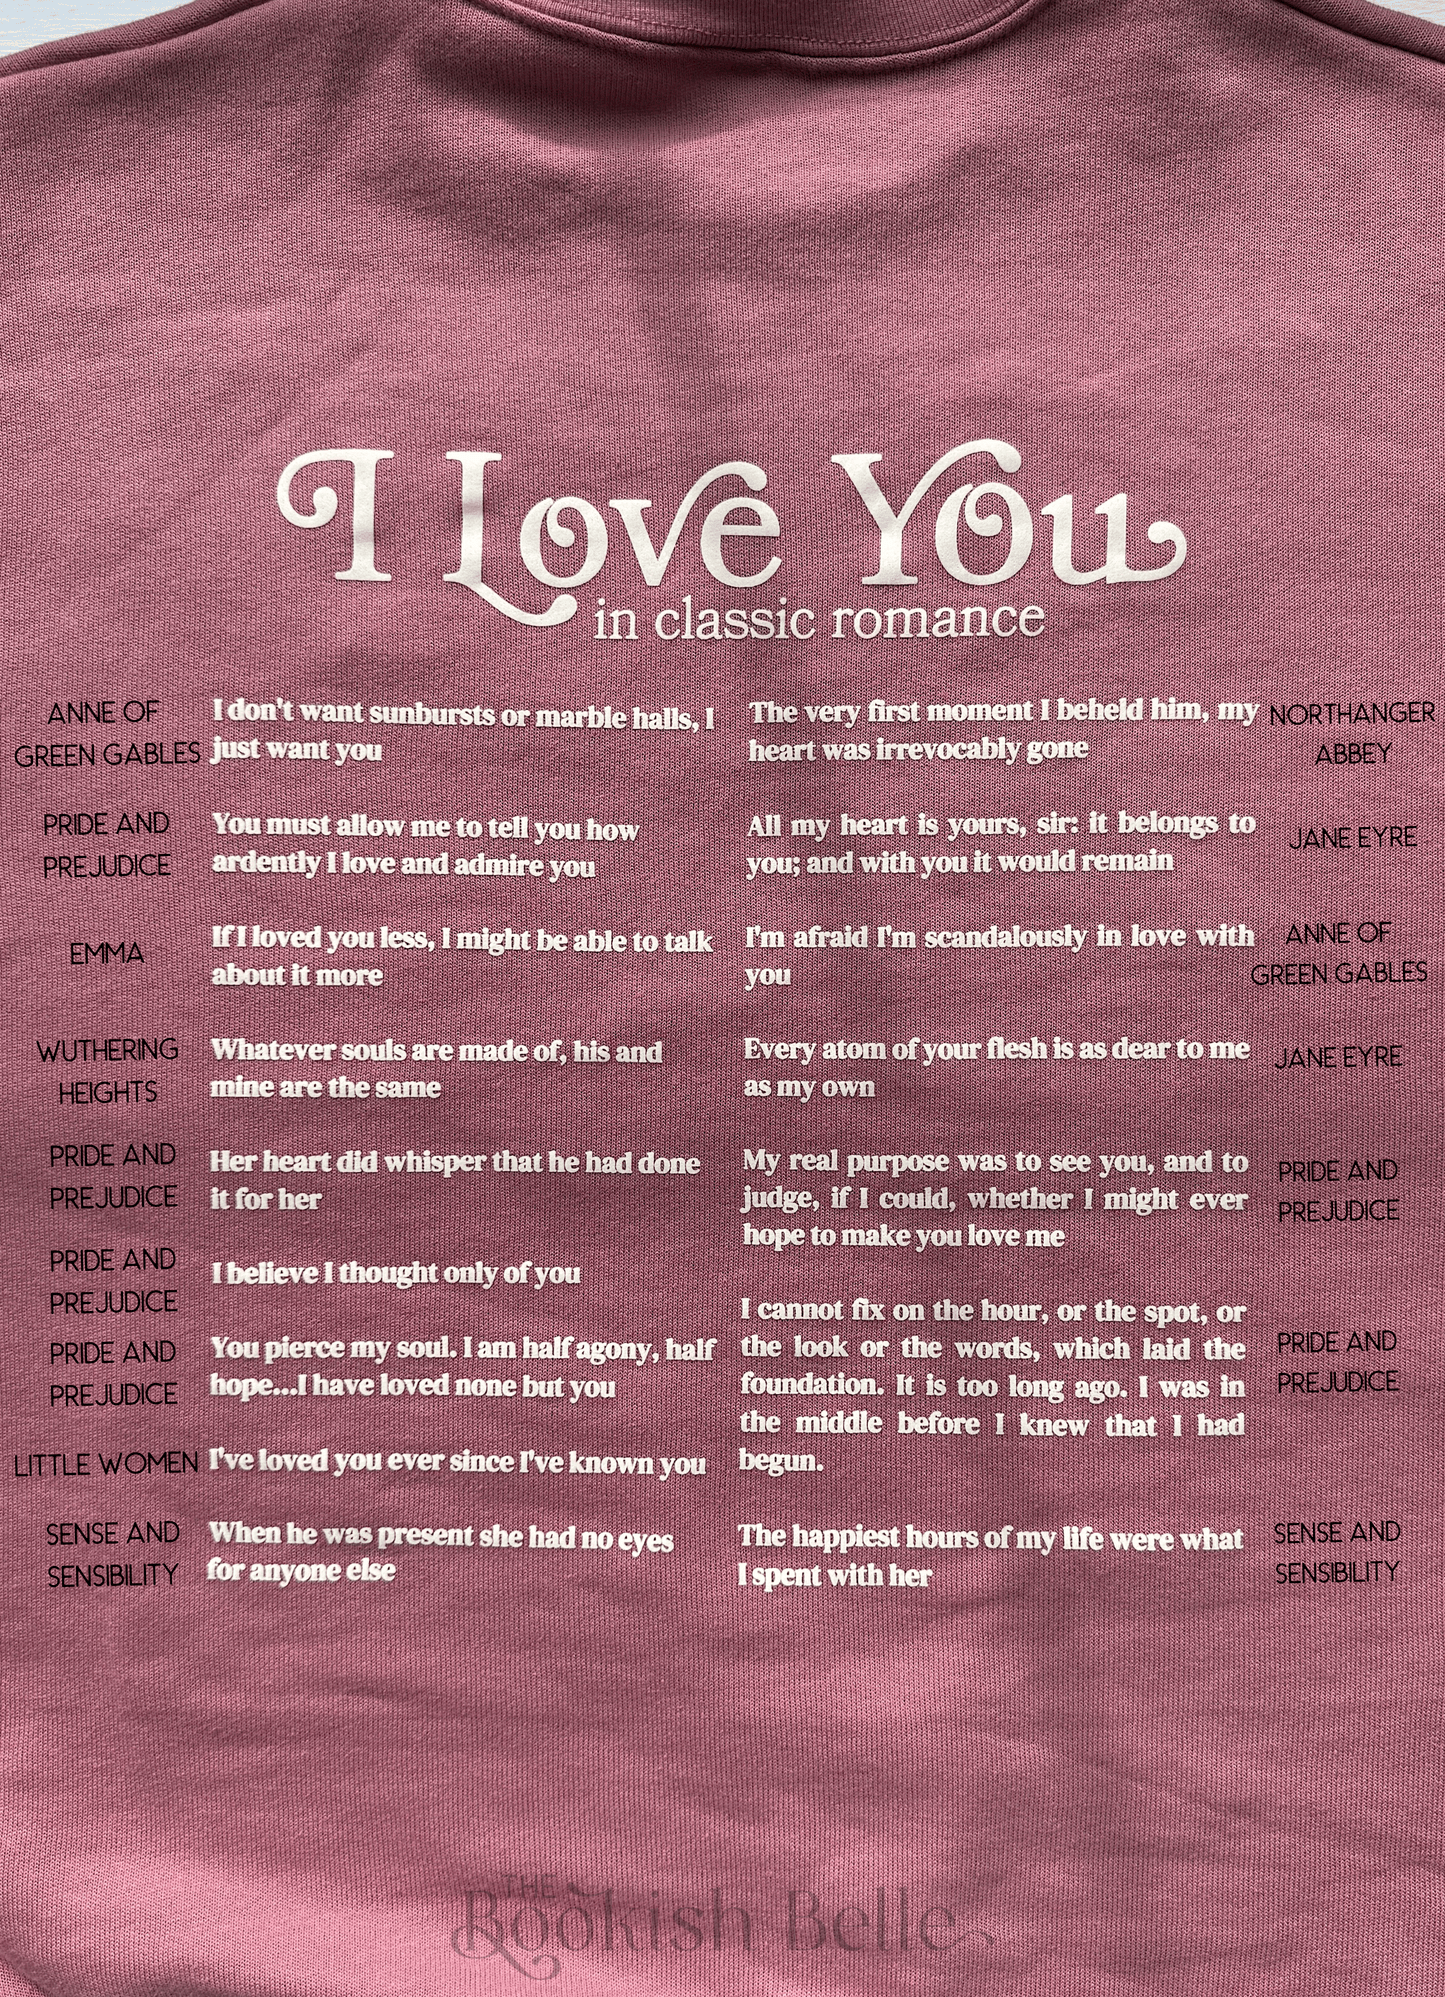 I Love You
in classic romance
ANNE OF
GREEN GABLES
I don't want sunbursts or marble halls, I
just want you
PRIDE AND
PREJUDICE
You must allow me to tell you how
ardently I love and admire you
EMMA
If I loved you less, I might be able to talk
about it more
WUTHERING
HEIGHTS
Whatever souls are made of, his and
mine are the same
PRIDE AND
PREJUDICE
Her heart did whisper that he had done
it for her
PRIDE AND
PREJUDICE
I believe I thought only of you
PRIDE AND
PREJUDICE
You pierce my soul. I am half agony, half
hope...I have loved none but you
LITTLE WOMEN
I've loved you ever since I've known you
SENSE AND
SENSIBILITY
When he was present she had no eyes
for anyone else
The very first moment I beheld him, my
heart was irrevocably gone
NORTHANGER
ABBEY
All my heart is yours, sir: it belongs to
you; and with you it would remain
JANE EYRE
I'm afraid I'm scandalously in love with
you
ANNE OF
GREEN GABLES
Every atom of your flesh is as dear to me
as my own
JANE EYRE
My real purpose was to see you, and to
judge, if I could, whether I might ever
hope to make you love me
PRIDE AND
PREJUDICE
I cannot fix on the hour, or the spot, or
the look or the words, which laid the
foundation. It is too long ago. I was in
the middle before I knew that I had
begun.
PRIDE AND
PREJUDICE
The happiest hours of my life were what
I spent with her
SENSE AND
SENSIBILITY
THE
Bookish Belle